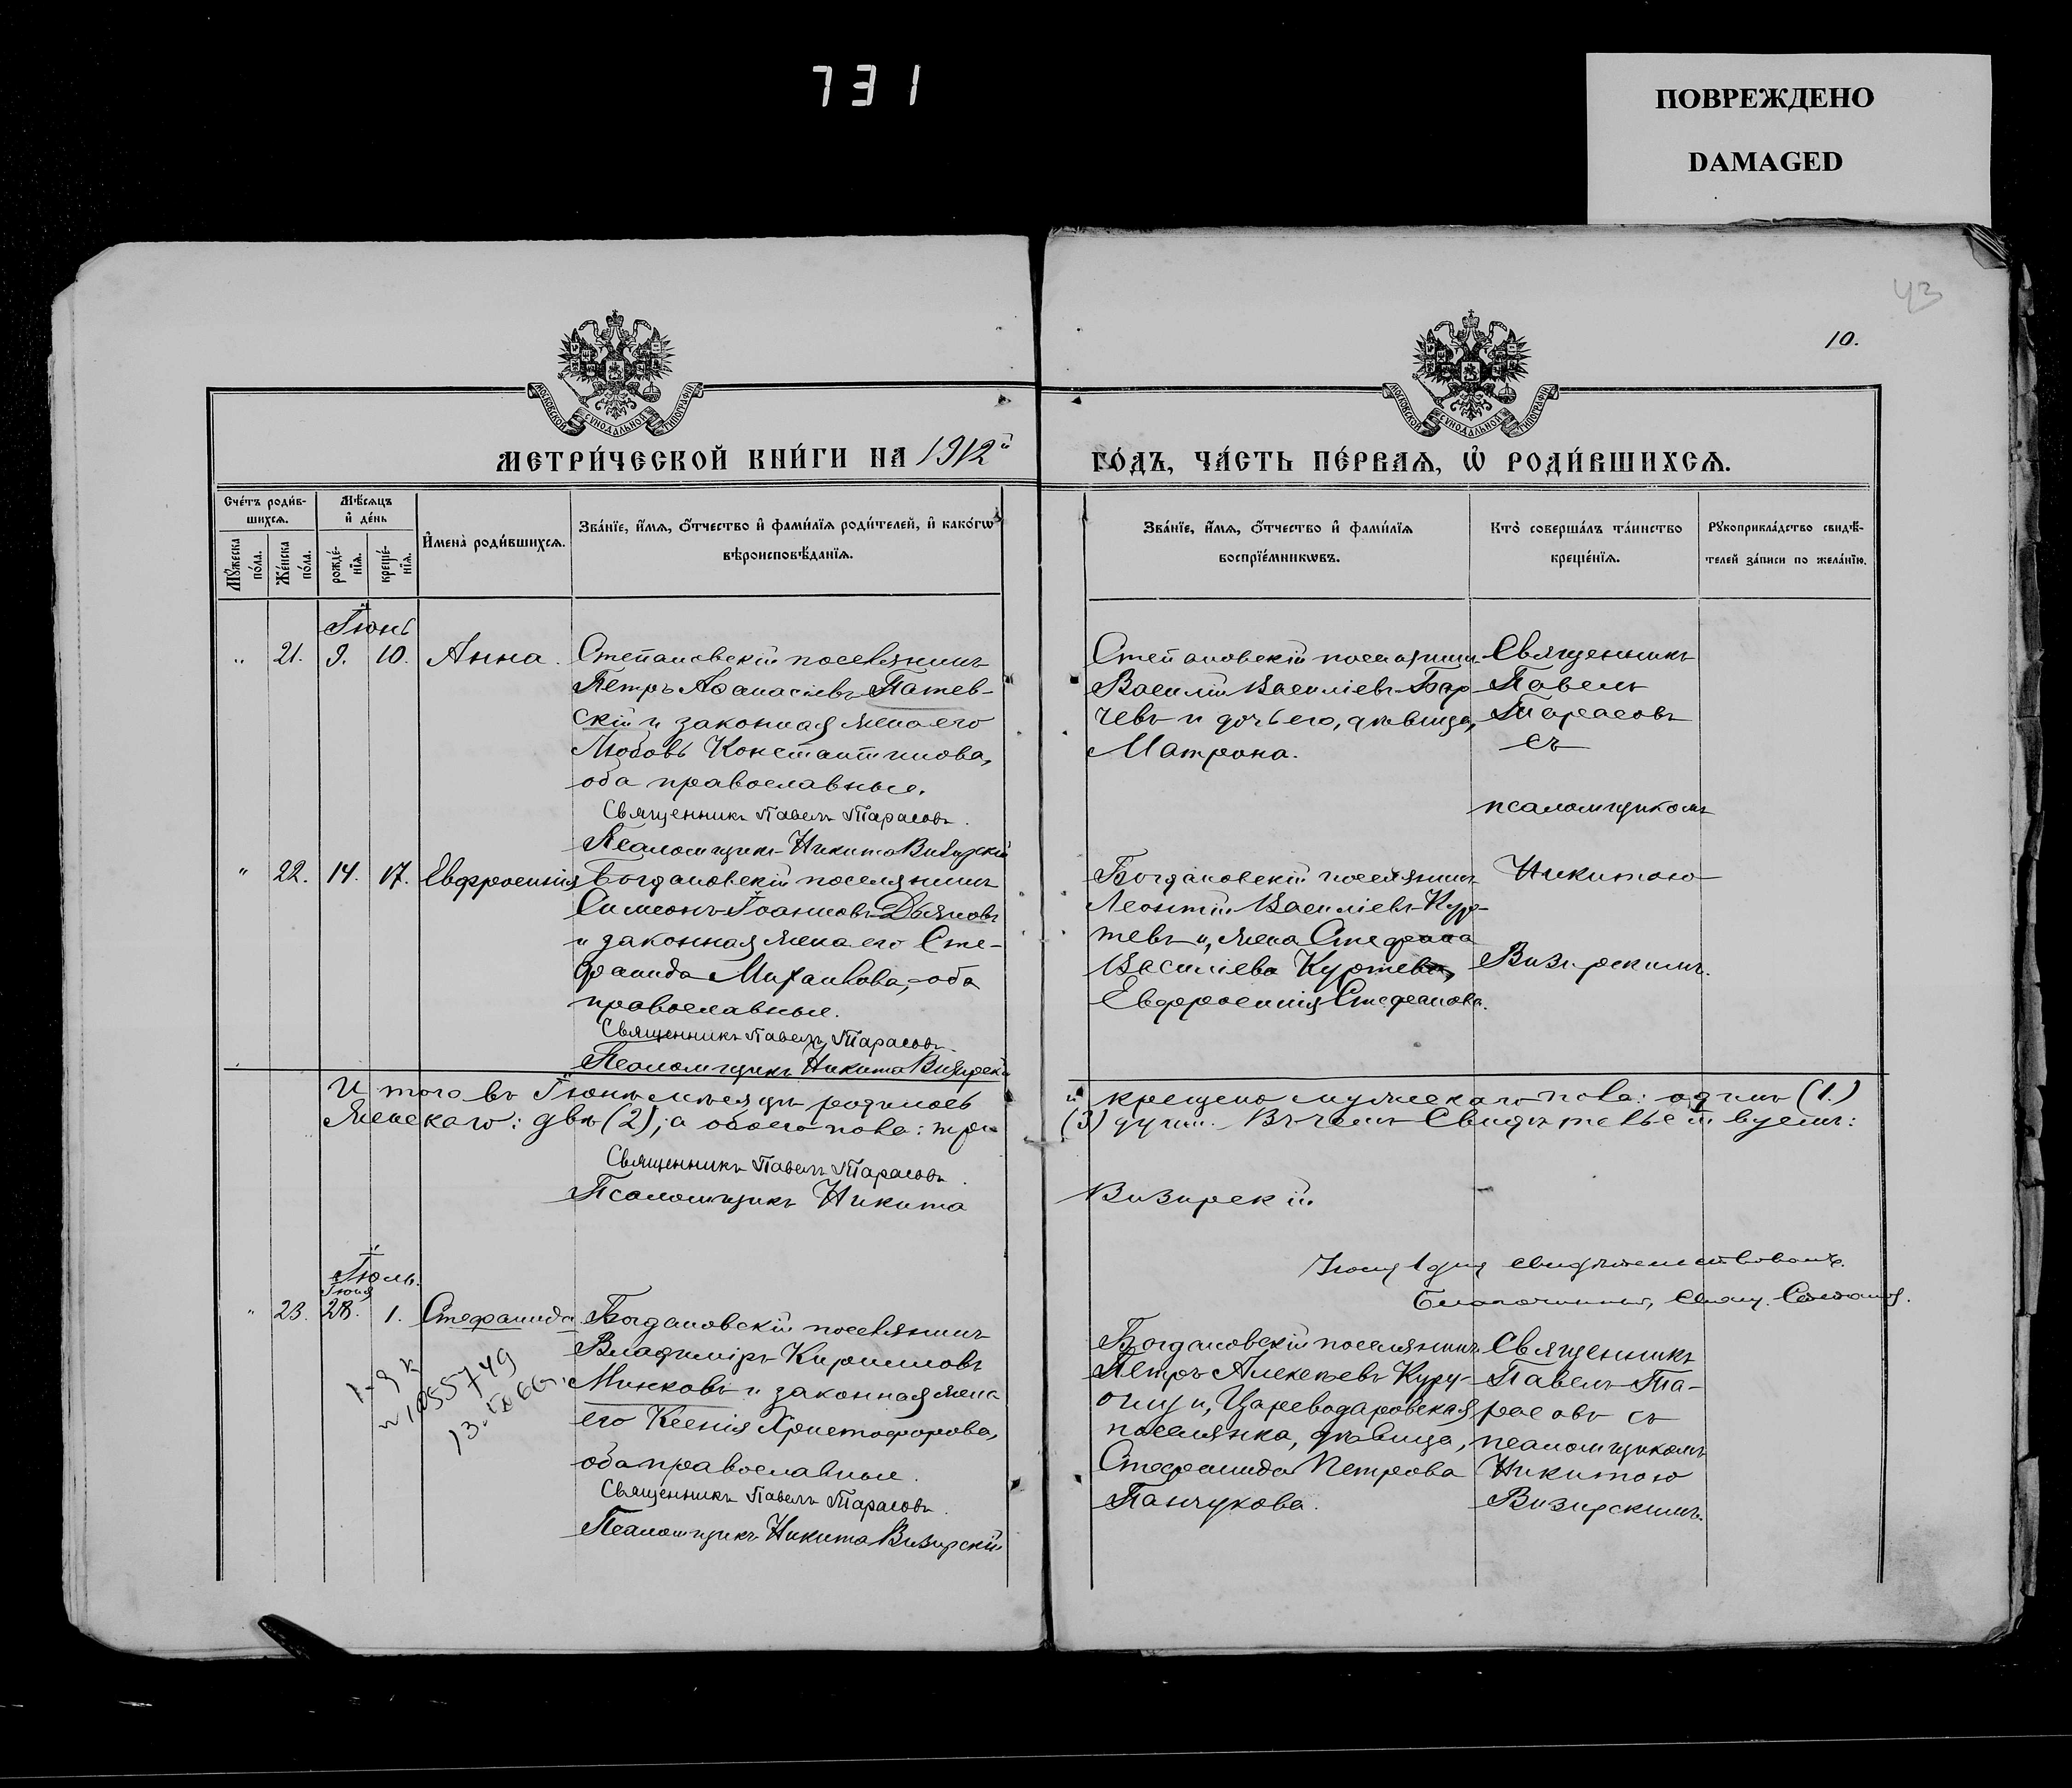 731
ПОВРЕЖДЕНО
DAMAGED
43
10.
МОСКОВСКОЙ СѴНОДАЛЬНОЙ ТИПОГРАФІИ
МОСКОВСКОЙ СѴНОДАЛЬНОЙ ТИПОГРАФІИ
МЕТРИ́ЧЕСКОЙ КНИ́ГИ НА 1912й
ГО́ДЪ, ЧА́СТЬ ПЕ́РВАѦ, Ѡ҆ РОДИ́ВШИХСѦ.
Сче́тъ роди́в-
шихсѧ.
Мꙋ́жеска по́ла.
Же́нска по́ла.
Мѣ́сѧцъ
и҆ де́нь
рожде́-
нїѧ.
креще́-
нїѧ.
И҆мена̀ роди́вшихсѧ.
Зва́нїе, и҆́мѧ, ѻ҆́тчество и҆ фами́лїѧ роди́телей, и҆ како́гѡ
вѣроисповѣ́данїѧ.
Зва́нїе, и҆́мѧ, ѻ҆́тчество и҆ фами́лїѧ
воспрїе́мникѡвъ.
Кто̀ соверша́лъ та́инство
креще́нїѧ.
Рꙋкоприкла́дство свидѣ́-
телей за́писи по жела́нїю.
Іюнь
" 21. 9. 10. Анна.
Степановскій поселянинъ
Петръ Аѳанасіевъ Патев-
скій и законная жена его
Любовь Константинова,
оба православные.
Священникъ Павелъ Тарасовъ.
Псаломщикъ Никита Визирскій
Степановскій поселянинъ
Василій Василіевъ
чевъ и дочь его, дѣвица,
Матрона.
Священникъ
Павелъ
Тарасовъ
съ
псаломщикомъ
Никитою
Визирскимъ.
" 22. 14. 17. Евфросинія
Богдановскій поселянинъ
Симеонъ Іоанновъ Дьяновъ
и законная жена его Сте-
фанида Михаилова, оба
православные.
Священникъ Павелъ Тарасовъ.
Псаломщикъ Никита Визирскій
Богдановскій поселянинъ
Леонтій Василіевъ Кур-
тевъ и, жена
Василіева Куртева,
Евфросинія Стефанова.
Итого въ Іюнѣ мѣсяцѣ родилось
и крещено мужескаго пола: одинъ (1.)
Женскаго: двѣ (2), а обоего пола: три
(3) души. Въ чемъ свидѣтельствуемъ:
Священникъ Павелъ Тарасовъ.
Псаломщикъ Никита
Визирскій.
Іюля 1 дня свидѣтельствовалъ.
Благочинный, Свящ.
Іюль.
Іюня
" 23. 28. 1. Стефанида
Богдановскій поселянинъ
Владиміръ Кирилловъ
Минковъ и законная жена
его Ксенія Христофорова,
оба православные.
Священникъ Павелъ Тарасовъ.
Псаломщикъ Никита Визирскій
Богдановскій поселянинъ
Петръ Алексѣевъ Куру-
оглу и, Цареводаровская
поселянка, дѣвица,
Стефанида Петрова
Панчукова.
Священникъ
Павелъ Та-
расовъ съ
псаломщикомъ
Никитою
Визирскимъ.